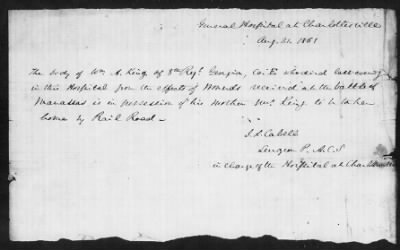 General Hospital at Charlottesville
Aug. 21. 1861
The body of Wm A. King of 8th Regt. Georgia, Co. E who died last evening
in this Hospital from the effects of wounds received at the battle of
Manassas is in possession of his mother Mrs King to be taken
home by Rail Road —
J. L. Cabell
Surgeon P. A. C. S
in charge of the Hospital at Charlottesville